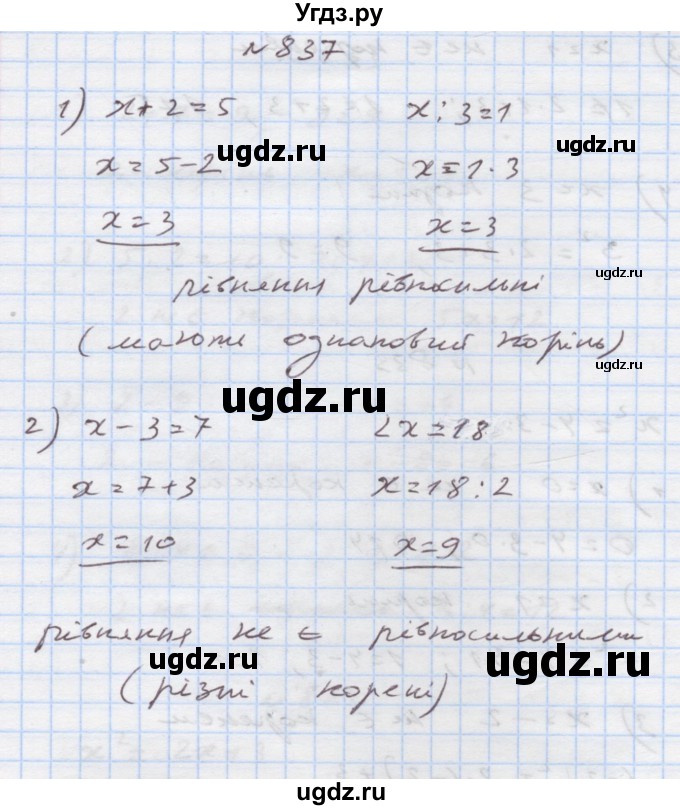 Угдз.ру
№ 837
1) x + 2 = 5 x : 3 = 1
x = 5 - 2 x = 1 · 3
ugdz.ru
ugdz.ru
x = 3 x = 3
рівняння рівносильні
ugdz.ru
(мають однаковий корінь)
ugdz.ru
ugdz.ru
2) x - 3 = 7 2x = 18
x = 7 + 3 x = 18 : 2
x = 10 x = 9
рівняння не є рівносильними
ugdz.ru
ugdz.ru
(різні корені)
ugdz.ru